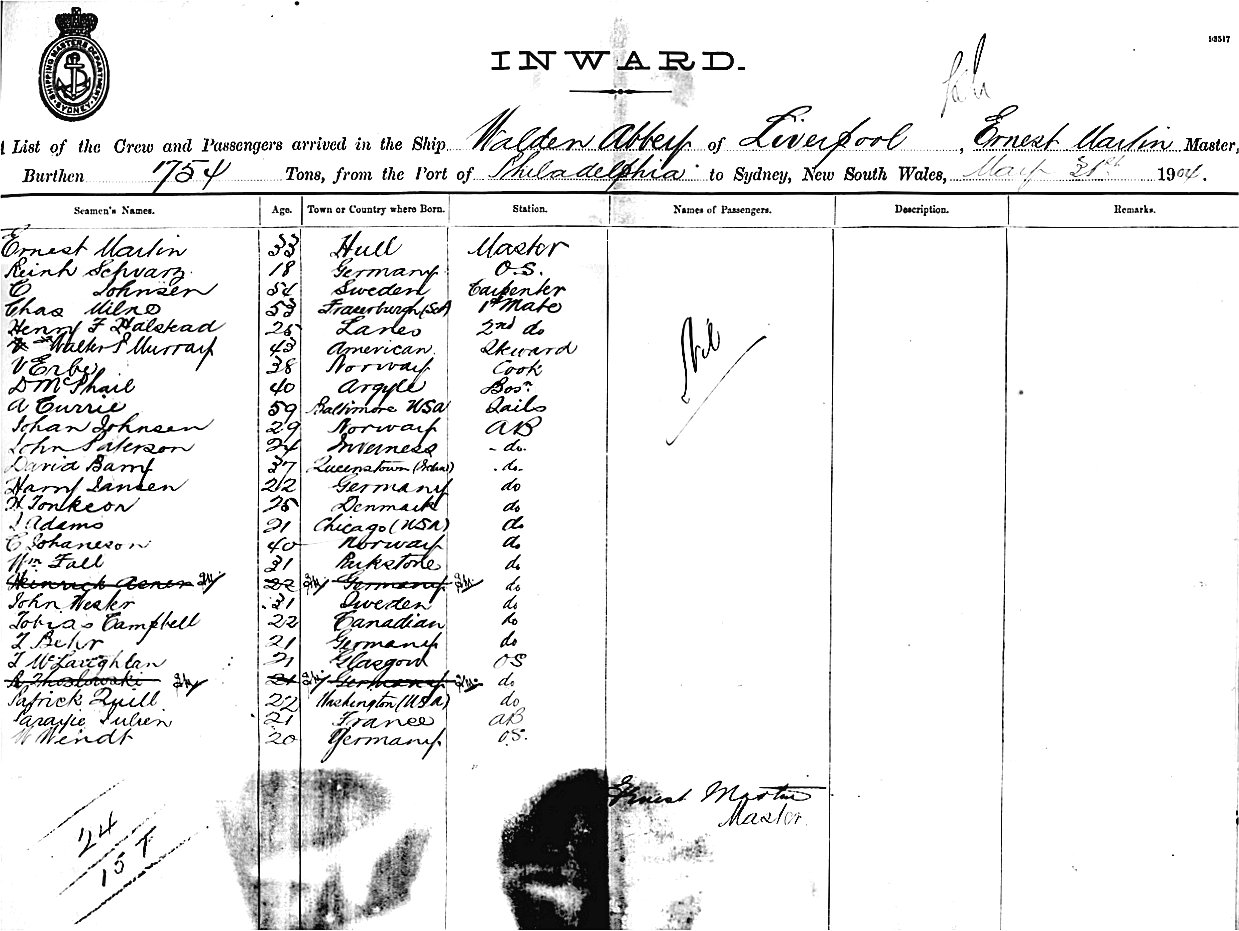 13517
SHIPPING MASTERS DEPARTMENT SYDNEY
INWARD.
List of the Crew and Passengers arrived in the Ship Walden Abbey of Liverpool, Ernest Martin Master,
Burthen 1754 Tons, from the Port of Philadelphia to Sydney, New South Wales, May 31st 1904.
Seamen's Names. Age. Town or Country where Born. Station. Names of Passengers. Description. Remarks.
Ernest Martin 33 Hull Master
Reinh Schvarz 18 Germany O.S.
C Johnsen 54 Sweden Carpenter
Chas Milne 53 1st Mate
Henry F Halstead 25 Lancs 2nd do
Walter S Murray 43 American Steward
Nil
V Erbe 38 Norway Cook
D McPhail 40 Argyle Bosn
A Currie 59 Baltimore USA Sails
Johan Johnsen 29 Norway AB
John Paterson 24 Inverness do
David Barry 37 Queenstown do
Harry Jansen 22 Germany do
H Tonkson 25 Denmark do
J Adams 21 Chicago (USA) do
C Johaneson 40 Norway do
Wm Fall 31 Parkstone do
Heinrich 22 Germany do
John Wester 31 Sweden do
Tobias Campbell 22 Canadian do
T Behr 21 Germany do
T McLaughlan 21 Glasgow OS
21 Germany do
Patrick Quill 22 Washington (USA) do
Julien 21 France AB
W Wendt 20 Germany O.S.
Ernest Martin
Master
24
15